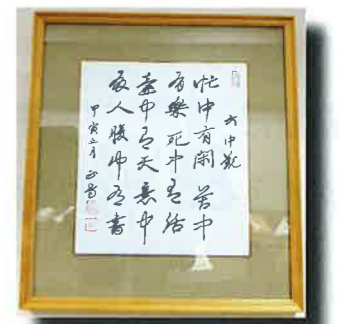 六中觀
忙中有閑 苦中
有樂 死中有活
壺中有天 意中
有人 腹中有書
甲寅五月 正篤